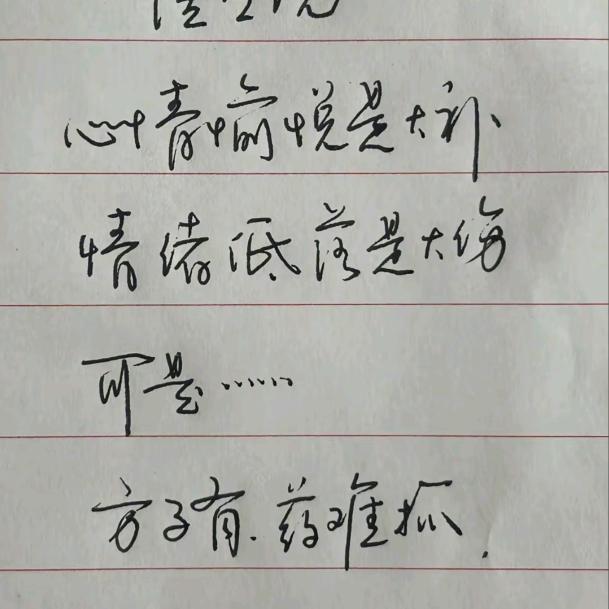 医生说
心情愉悦是大补
情绪低落是大伤
可是……
方子有.药难抓.